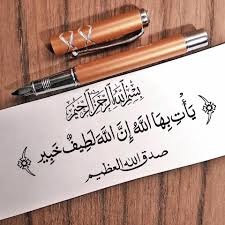 بسم الله الرحمن الرحيم
يَأْتِ بِهَا اللَّهُ إِنَّ اللَّهَ لَطِيفٌ خَبِيرٌ
صدق الله العظيم